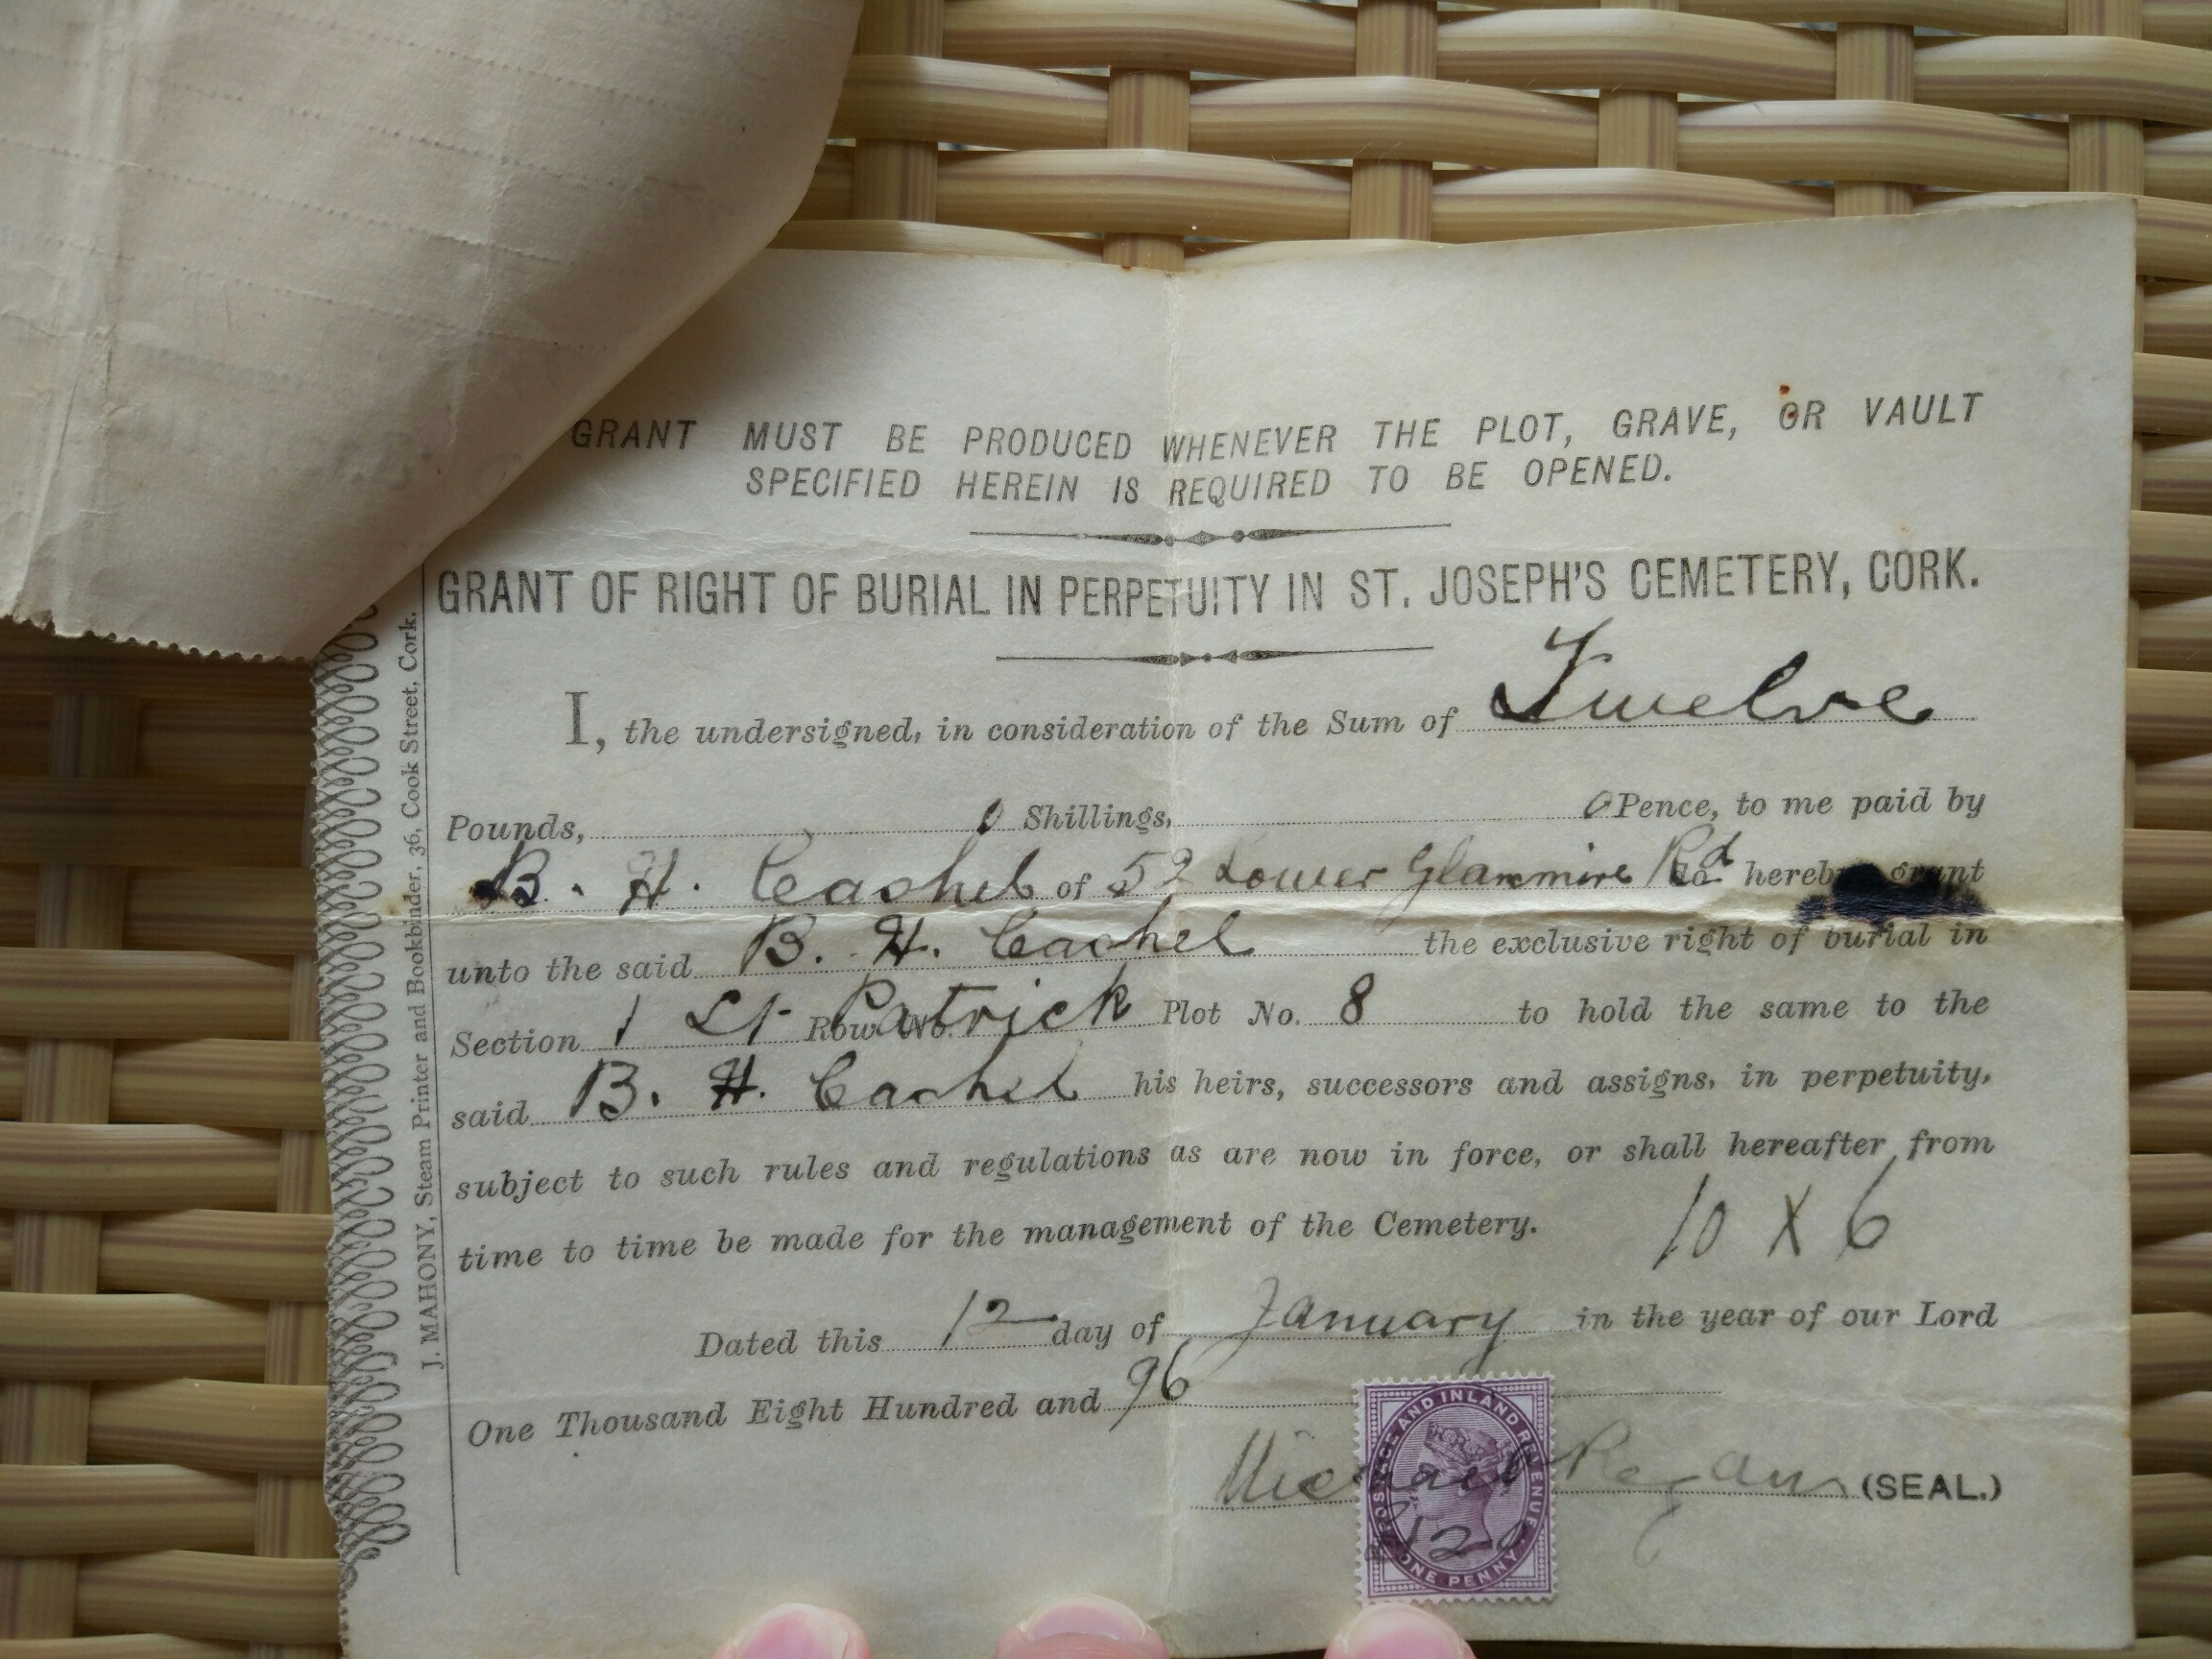 GRANT MUST BE PRODUCED WHENEVER THE PLOT, GRAVE, OR VAULT
SPECIFIED HEREIN IS REQUIRED TO BE OPENED.
GRANT OF RIGHT OF BURIAL IN PERPETUITY IN ST. JOSEPH'S CEMETERY, CORK.
I, the undersigned, in consideration of the Sum of Twelve
Pounds, 0 Shillings, 0 Pence, to me paid by
B. H. Cashel of 52 Lower Glanmire Rd do hereby grant
unto the said B. H. Cashel the exclusive right of burial in
Section 1 St Patrick Row No. Plot No. 8 to hold the same to the
said B. H. Cashel his heirs, successors and assigns, in perpetuity,
subject to such rules and regulations as are now in force, or shall hereafter from
time to time be made for the management of the Cemetery. 10 X 6
Dated this 12 day of January in the year of our Lord
One Thousand Eight Hundred and 96
Michael Regan (SEAL.)
POSTAGE AND INLAND REVENUE
ONE PENNY
J. MAHONY, Steam Printer and Bookbinder, 36, Cook Street, Cork.